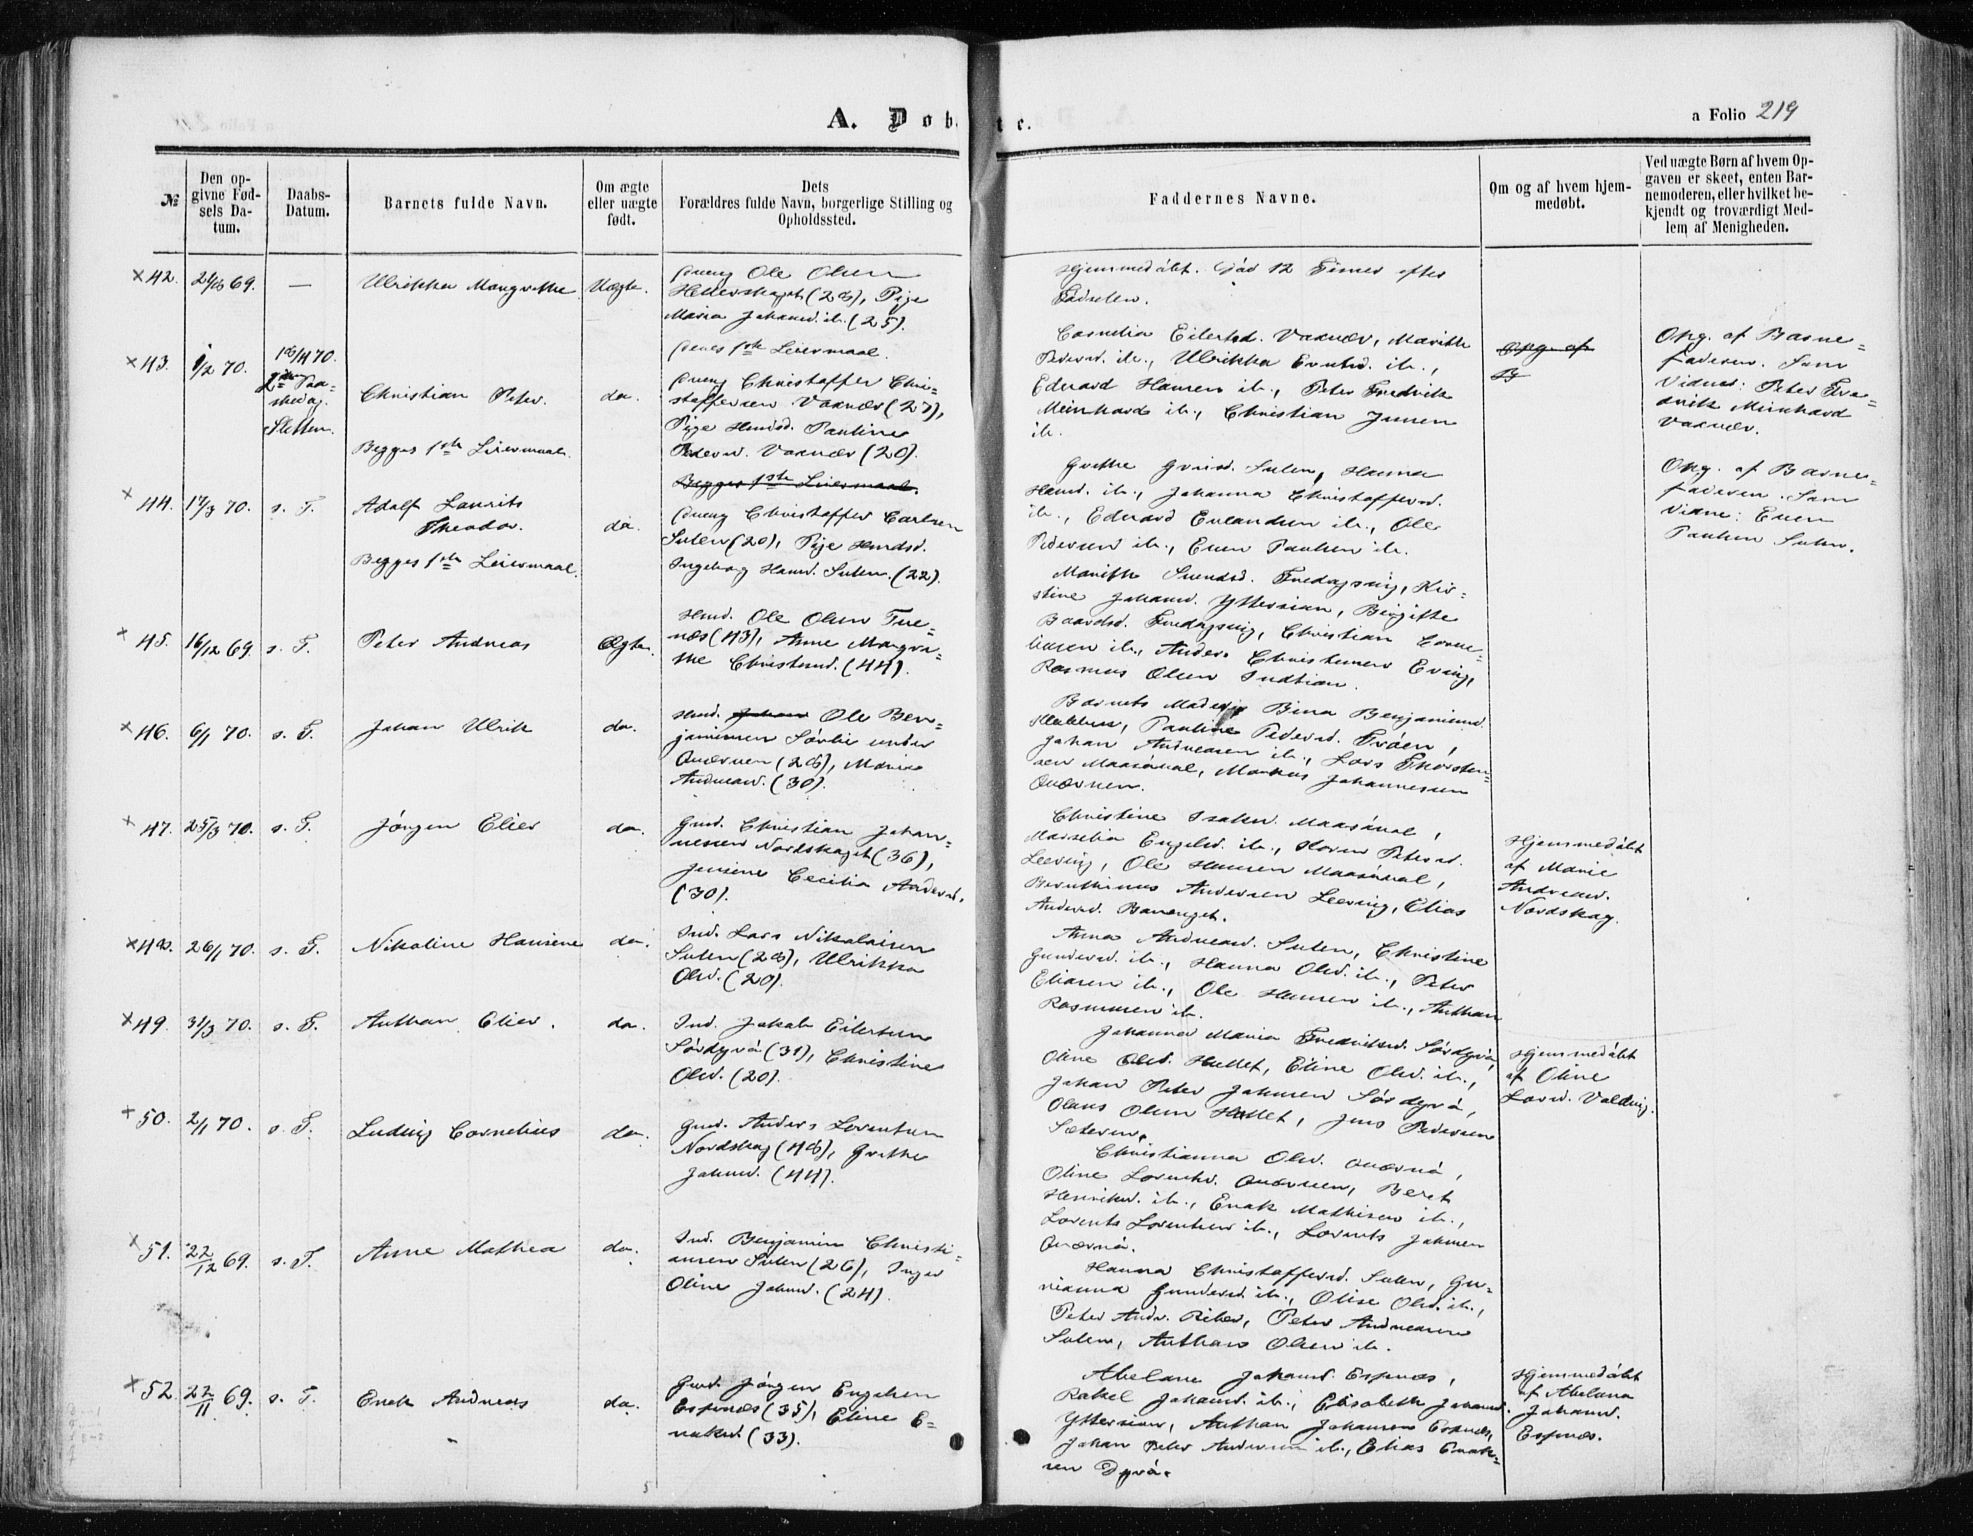 A. Døbte.
a Folio 219
№
Den op-
givne Fød-
sels Da-
tum.
Daabs-
Datum.
Barnets fulde Navn.
Om ægte
eller uægte
født.
Dets
Forældres fulde Navn, borgerlige Stilling og
Opholdssted.
Faddernes Navne.
Om og af hvem hjem-
medøbt.
Ved uægte Børn af hvem Op-
gaven er skeet, enten Bar-
nemoderen, eller hvilket be-
kjendt og troværdigt Med-
lem af Menigheden.
×42. 69. — Ulrikka Margrethe Uægte.
Ungk. Ole Olsen
(28), Pige
Maria Johansd. ib. (25).
Denes 1ste Leiermaal.
Hjemmedøbt. Død 12 Timer efter
Fødselen.
×43. 1/2 70. 18/4 70.
Sletten.
Christian Peter. do.
Begges 1ste Leiermaal.
Ungk. Christoffer Chri-
stoffersen Vaxvær (27),
Pige Hansd. Pauline
Pedersd. Vaxvær (20).
Begges 1ste Leiermaal.
Cornelia Eilertsd. Vaxvær, Marith
Pedersd. ib., Ulrikka ib.,
Edvard Hansen ib., Peter Fredrik
Meinhard ib., Christian Jensen
ib.
Opg. af
B
Opg. af Barne-
faderen. Som
Vidne: Peter Fre-
drik Meinhard
Vaxvær.
×44. 17/3 70. s. T. Adolf Laurits
Theodor. do.
Begges 1ste Leiermaal.
Ungk. Christoffer Carlsen
Sulen (20), Pige Hansd.
Ingeborg Hansd. Sulen. (22).
Grethe Sulen, Hanna
Hansd. ib., Johanna Christoffersd.
ib., Edvard Erlandsen ib., Ole
Pedersen ib., Even Paulsen ib.
Opg. af Barne-
faderen. Som
Vidne: Even
Paulsen Sulen.
×45. 16/12 69 s. T. Peter Andreas Ægte.
Husm. Ole Olsen Fue-
næs (43), Anne Margre-
the Christensd. (44).
Marith Svendsd. Fredagsvig, Kir-
stine Johansd. Yttersian, Birgitte
Baardsd. Fredagsvig, Christian Corne-
liusen ib., Anders Christensen Eving,
Rasmus Olsen Indsian.
×46. 6/1 70. s. T. Johan Ulrik do.
Husm. Johan Ole Ben-
jaminsen Sørli under
Qværnen (28), Marie
Andreasd. (30).
Barnets Moder, Bina Benjaminsd.
Klakken, Pauline Pedersd. Frøen,
Johan Andreasen ib., Lars Thorsten-
sen Maasøval, Markus Johannesen
Qværnen.
×47. 25/3 70. s. T. Jørgen Elier do.
Gmd. Christian Johan-
nessen Nordskaget (36),
Jensine Cecilia Andersd.
(30).
Christine Isaksd. Maasøval,
Marselia Engelsd. ib., Karen Petersd.
Leeving, Ole Hansen Maasøval,
Bernthinus Andersen Leeving, Elias
Andersd. Barenget.
Hjemmedøbt
af Marie
Andreasd.
Nordskag.
×48. 26/1 70. s. T. Nikoline Hansine do.
Ind. Lars Nikolaisen
Sulen (28), Ulrikka
Olsd. (20).
Anna Andreasd. Sulen, Christine
Gundersd. ib., Hanna Olsd. ib., Peter
Eliasen ib., Ole Hansen ib., Anthon
Rasmussen ib.
×49. 31/3 70. s. T. Anthon Elier. do.
Ind. Jakob Eilertsen
Sørdyrø (31), Christine
Olsd. (20).
Johanna Maria Fredriksd. Sørdyrø,
Oline Olsd. Hallet, Eline Olsd. ib.,
Johan Peter Johnsen Sørdyrø,
Olaus Olsen Hallet, Jens Pedersen
Sæteren.
Hjemmedøbt
af Oline
Larsd. Valdvig.
×50. 2/1 70. s. T. Ludvig Cornelius do.
Gmd. Anders Lorentsen
Nordskag (48), Grethe
Johnsd. (44).
Christianna Olsd. Qværnø,
Oline Lorentsd. Qværnen, Beret
Henriksd. ib., Enok Mathisen ib.,
Lorents Lorentsen ib., Lorents Johnsen
Qværnø.
×51. 22/12 69. s. T. Anne Mathea do.
Ind. Benjamin Christi-
ansen Sulen (26), Inger
Oline Johnsd. (24).
Hanna Christoffersd. Sulen, Gu-
rianna Gundersd. ib., Olise Olsd. ib.,
Peter Andr. Riber, Peter Andreasen
Sulen, Anthon Olsen ib.
×52. 22/11 69. s. T. Enok Andreas do.
Gmd. Jørgen Engelsen
Espnæs (35), Eline E-
noksd. (33).
Abelone Johansd. Espnæs,
Rakel Johansd. ib., Elisabeth Johansd.
Yttersian, Anthon Johansen Espnæs,
Johan Peter Andersen ib., Elias Enok-
sen Dyrø.
Hjemmedøbt
af Abelona
Johansd.
Espnæs.